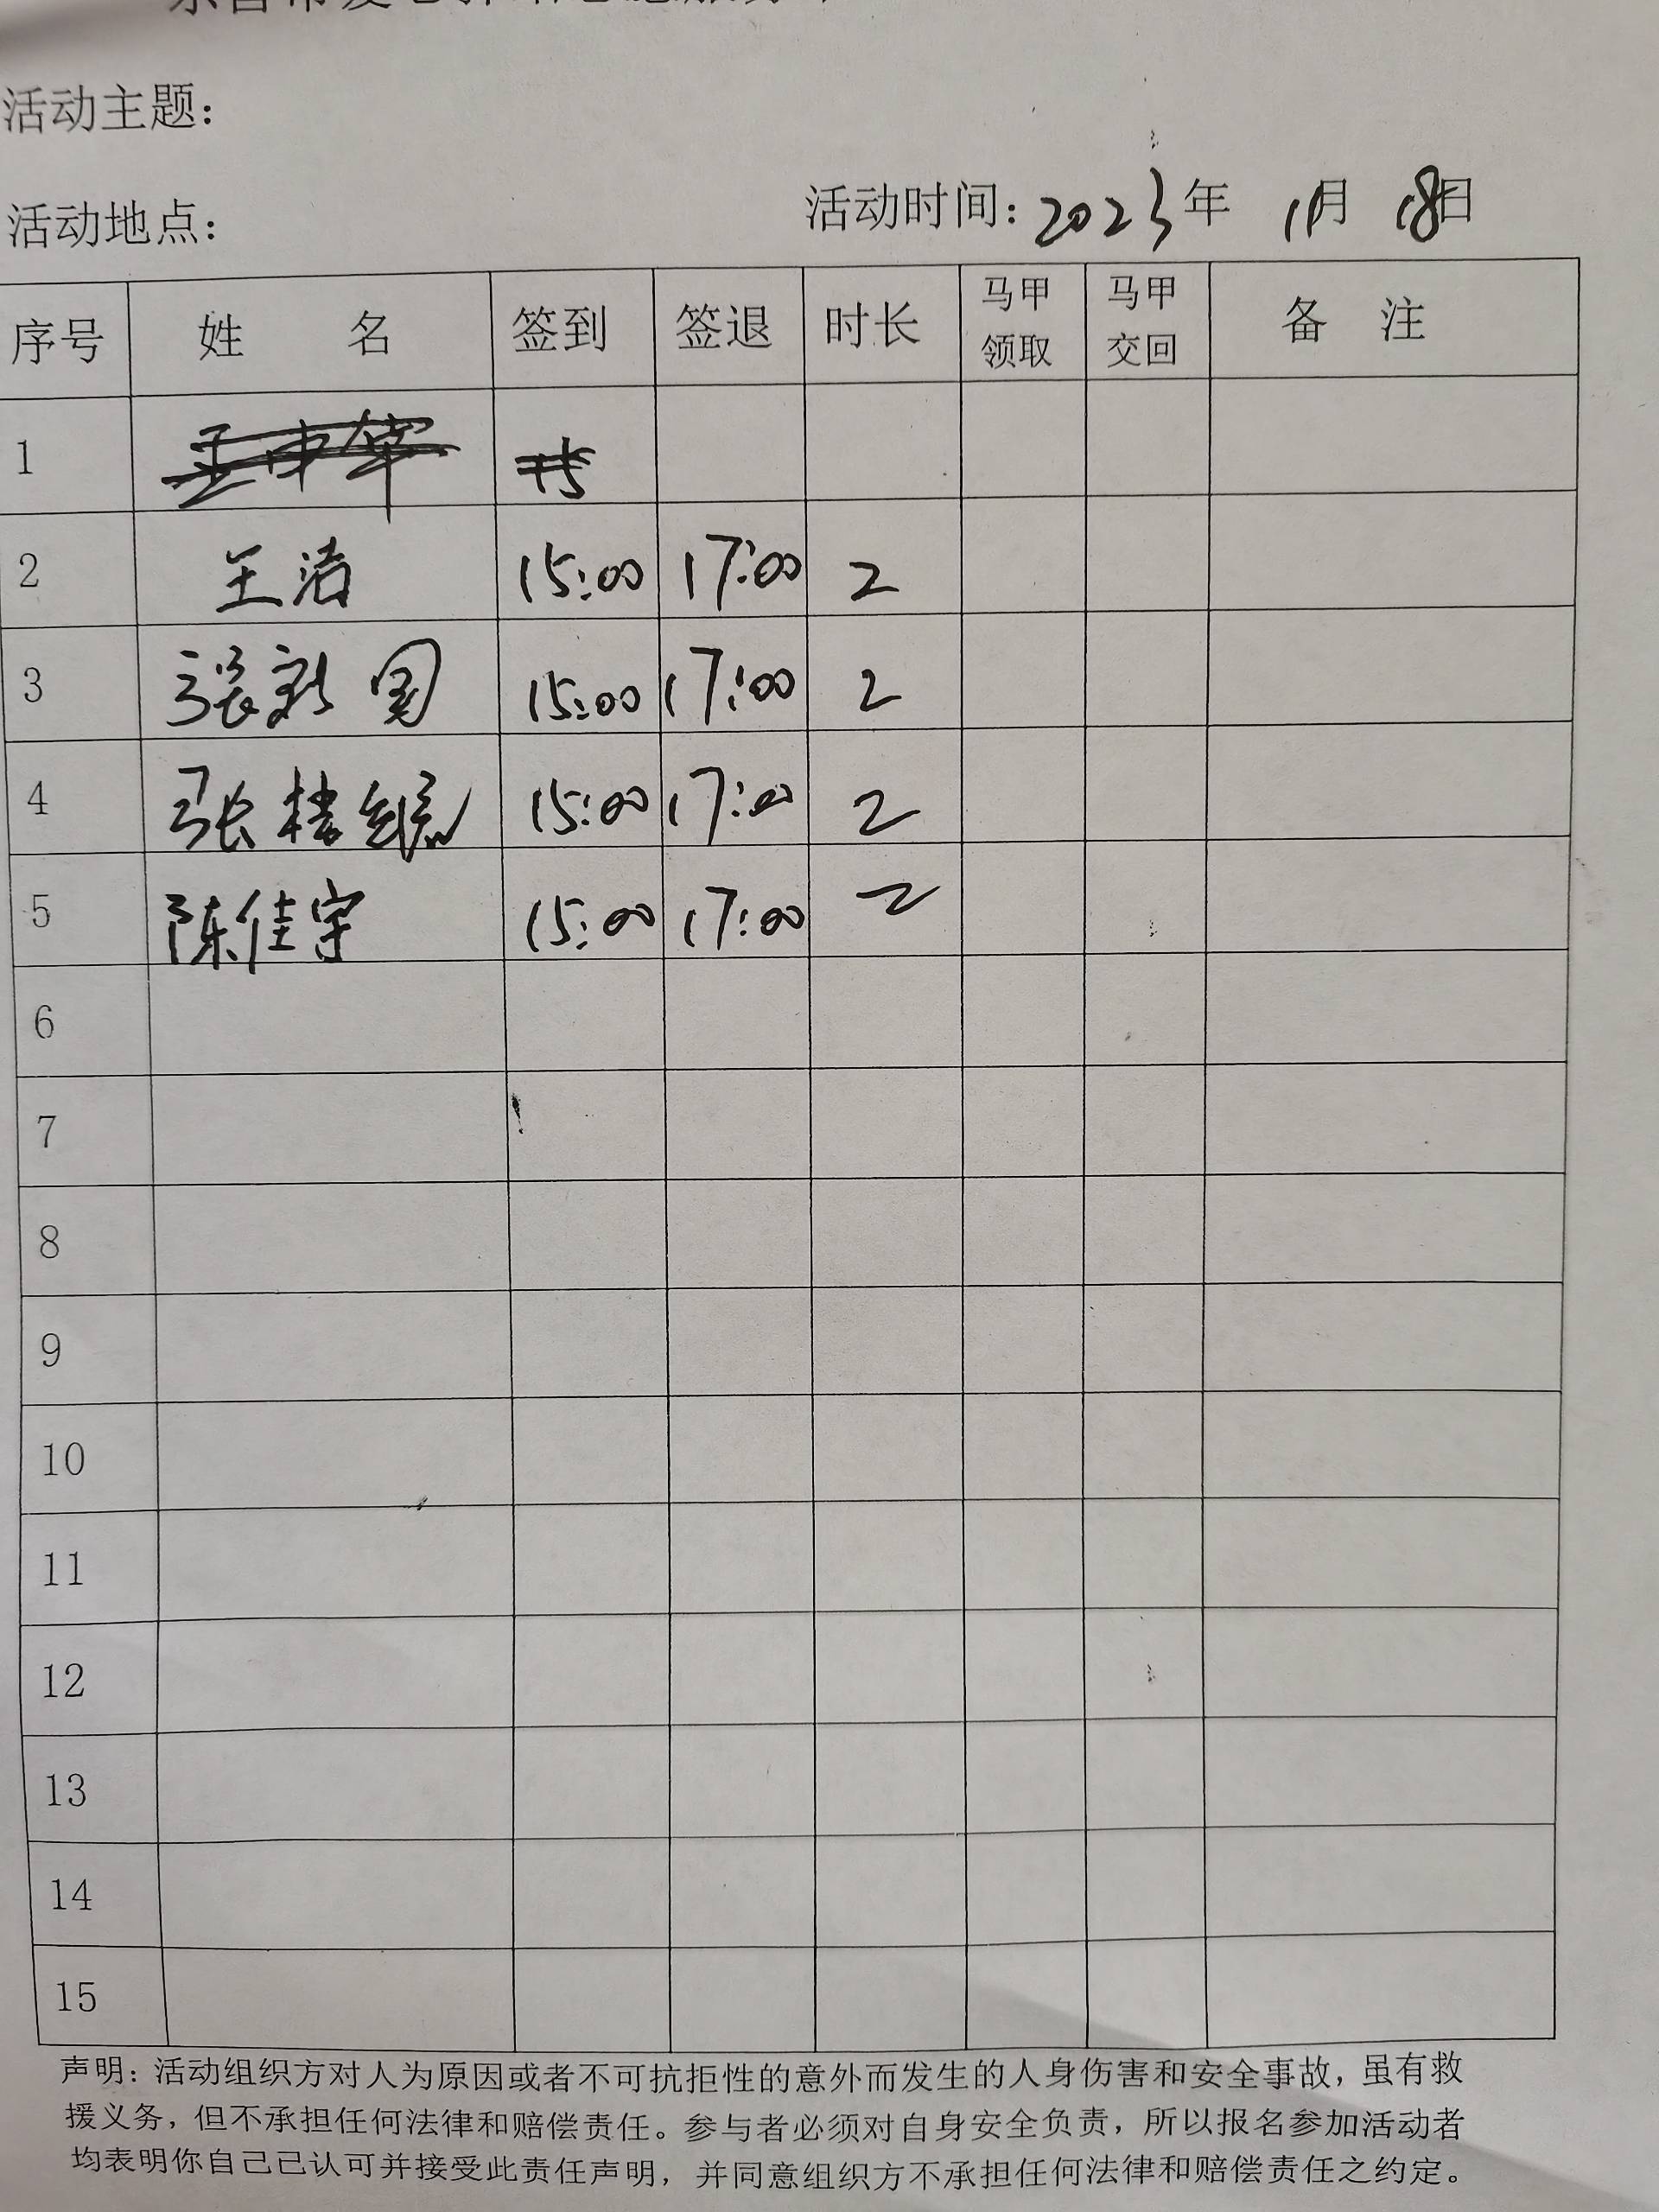 活动主题：
活动地点： 活动时间：2023年 11月 18日
序号 姓 名 签到 签退 时长 马甲领取 马甲交回 备 注
1
2 王洁 15:00 17:00 2
3 张新国 15:00 17:00 2
4 张 15:00 17:00 2
5 陈佳宇 15:00 17:00 2
6
7
8
9
10
11
12
13
14
15
声明：活动组织方对人为原因或者不可抗拒性的意外而发生的人身伤害和安全事故，虽有救
援义务，但不承担任何法律和赔偿责任。参与者必须对自身安全负责，所以报名参加活动者
均表明你自己已认可并接受此责任声明，并同意组织方不承担任何法律和赔偿责任之约定。